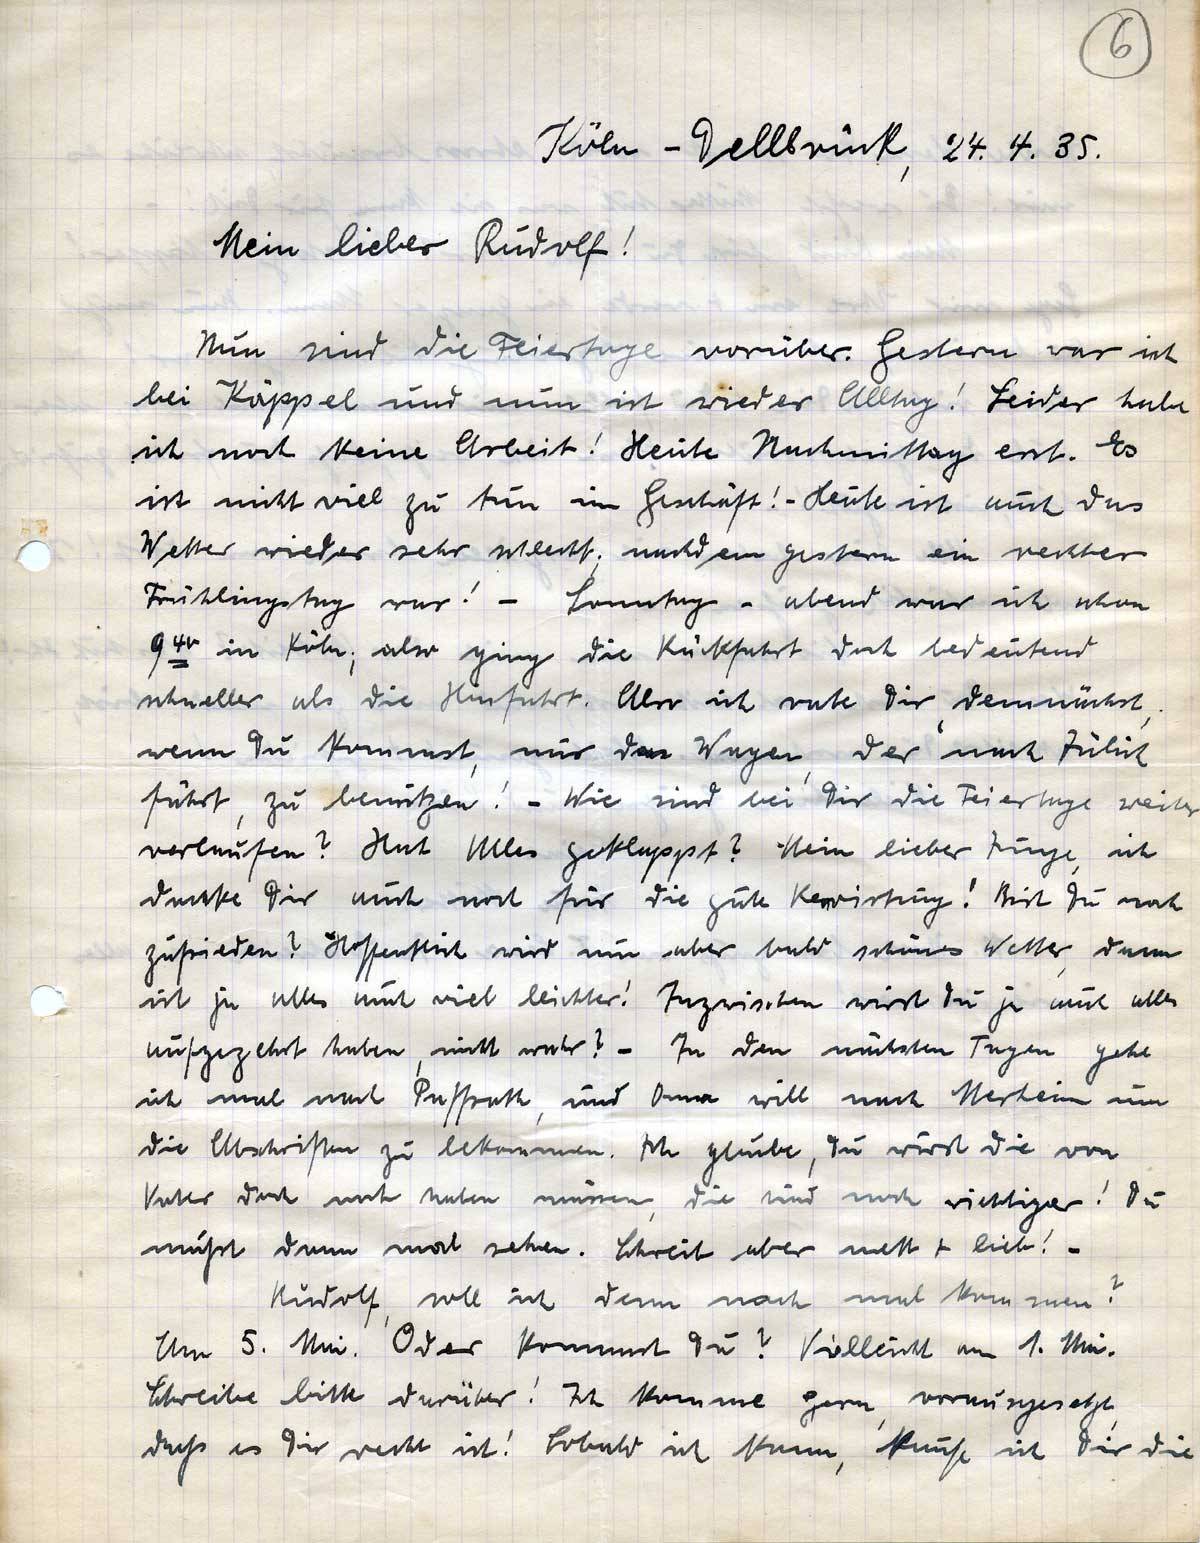 6
Köln - Dellbrück, 24. 4. 35.
Mein lieber Rudolf!
Nun sind die Feiertage vorüber. Gestern war ich
bei Käppel und nun ist wieder Alltag! Leider habe
ich noch keine Arbeit! Heute Nachmittag erst. Es
ist nicht viel zu tun im Geschäft! - Heute ist auch das
Wetter wieder sehr schlecht, nachdem gestern ein rechter
Frühlingstag war! - Sonntag - abend war ich schon
9 40 in Köln, also ging die Rückfahrt doch bedeutend
schneller als die Hinfahrt. Also ich rate Dir, demnächst,
wenn Du kommst, nur den Wagen, der nach Jülich
fährt, zu benützen! - Wie sind bei Dir die Feiertage weiter
verlaufen? Hat Alles geklappt? Mein lieber Junge, ich
danke Dir auch noch für die gute Bewirtung! Bist Du noch
zufrieden? Hoffentlich wird nun aber bald schönes Wetter, dann
ist ja alles auch viel leichter! Inzwischen wirst Du ja auch alles
aufgezehrt haben, nicht wahr? - In den nächsten Tagen gehe
ich mal nach Paffrath, und Oma will nach Merheim um
die Abschriften zu bekommen. Ich glaube, Du wirst die von
Vater doch auch haben müssen, die sind noch wichtiger! Du
mußt dann mal sehen. Schreib aber nett + lieb! -
Rudolf, soll ich denn noch mal kommen?
Am 5. Mai. Oder kommst Du? Vielleicht am 1. Mai.
Schreibe bitte darüber! Ich komme gern, vorausgesetzt,
daß es Dir recht ist! Sobald ich kann, kaufe ich Dir die